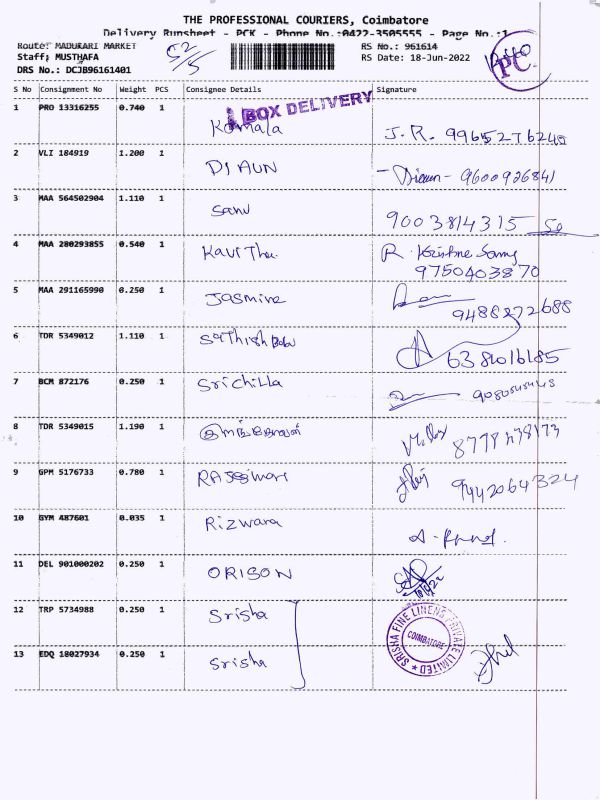 THE PROFESSIONAL COURIERS, Coimbatore
Delivery Runsheet - PCK - Phone No.:0422-3505555 - Page No.:1
Route: MADUKARI MARKET RS No.: 961614
Staff: MUSTHAFA RS Date: 18-Jun-2022
DRS No.: DCJB96161401
PC
S No Consignment No Weight PCS Consignee Details Signature
BOX DELIVERY
1 PRO 13316255 0.740 1 Komala J. R. 9965276240
2 VLI 184919 1.200 1 DIAUN 9600926841
3 MAA 564502904 1.110 1 Sanu 9003814315
4 MAA 280293855 0.540 1 Kavi Tha R. Krishne Samy
9750403870
5 MAA 291165990 0.250 1 Jasmine
9488272688
6 TDR 5349012 1.110 1 Sathish Babu 6381016185
7 BCM 872176 0.250 1 Srichilla
8 TDR 5349015 1.190 1
9 GPM 5176733 0.780 1 RAJESWARI 9442064324
10 GYM 487601 0.035 1 Rizwara
11 DEL 901000202 0.250 1 ORISON
12 TRP 5734988 0.250 1 Srisha
SRISHA FINE LINENS PRIVATE LIMITED
COIMBATORE
13 EDQ 18027934 0.250 1 Srisha